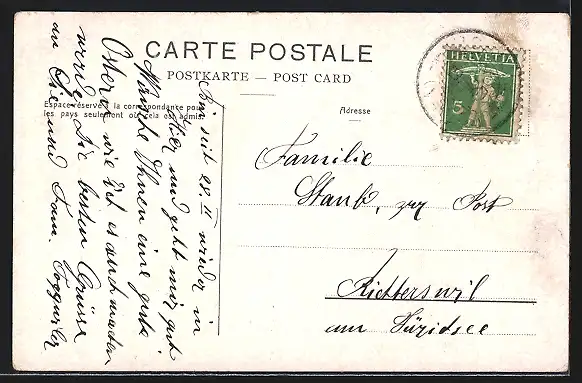 CARTE POSTALE
POSTKARTE — POST CARD
Espace réservé à la correspondance pour
les pays seulement où cela est admis.
Adresse
HELVETIA
5
Familie
Staub, zur Post
Richterswil
am Züridsee
Bin seit 28 II wieder in
und geht mir gut
Wünsche Ihnen eine gute
Ostern, wie es auch machen
werde. Die besten Grüsse
an Sie und Fam.